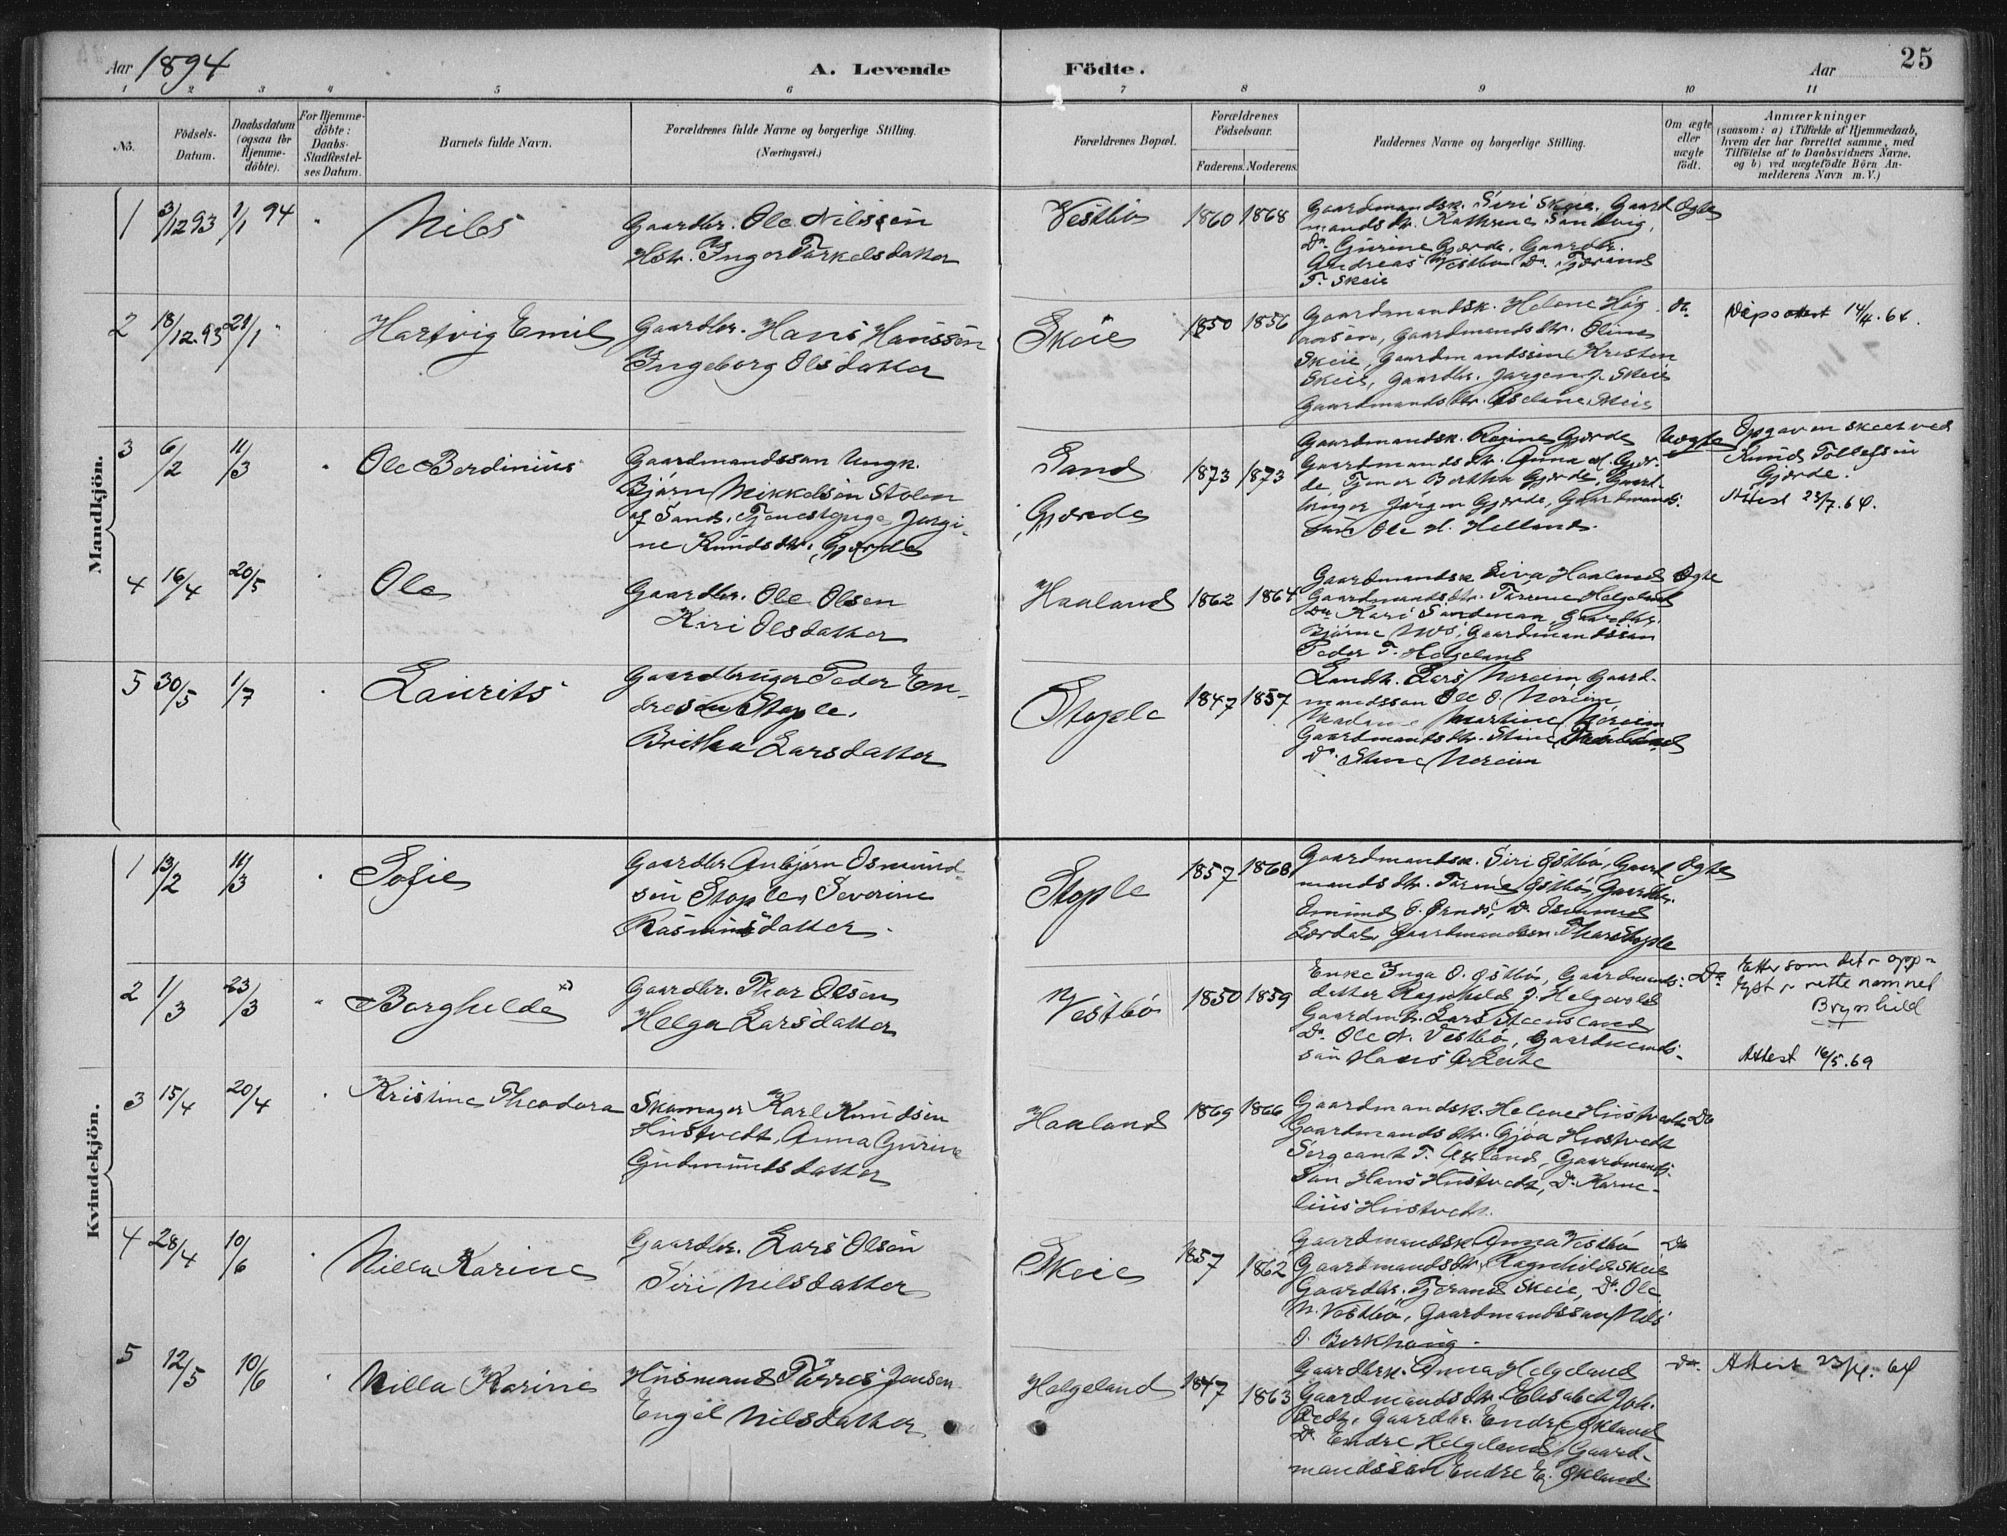 Aar 1894 A. Levende Födte. Aar 25
1 2 3 4 5 6 7 8 9 10 11
No.
Födsels-
Datum.
Daabsdatum
(ogsaa för
Hjemme-
döbte).
For Hjemme-
döbte:
Daabs-
Stadfæstel-
ses Datum.
Barnets fulde Navn.
Forældrenes fulde Navne og borgerlige Stilling.
(Næringsvei.)
Forældrenes Bopæl.
Forældrenes
Födselsaar.
Faderens. Moderens.
Faddernes Navne og borgerlige Stilling.
Om ægte
eller
uægte
födt.
Anmærkninger
(saasom: a) i Tilfælde af Hjemmedaab,
hvem der har forrettet samme, med
Tilföielse af to Daabsvidners Navne.
og b) ved uægtefödte Börn An-
melderens Navn m. V.)
Mandkjön.
1 3/12 93 1/1 94 Nils
Gaardbr. Ole Nilssen
Hstr. Inger Torkelsdatter
Vestbö 1860 1868
Gaardmandsk. Siri Skeie, Gaard
mandsdtr. Kathrine Sandvig,
Do Gurine Gjerde, Gaardbr.
Andreas Vestbö Do Tjerand
T. Skeie
Ægte
2 18/12 93 21/1 Hartvig Emil
Gaardbr. Hans Hanssen
Ingeborg Olsdatter
Skeie 1850 1856
Gaardmandsk. Helene
Gaardmandsdtr. Oline
Skeie, Gaardmandssøn Kristen
Skeie, Gaardbr. Jørgen J. Skeie
Gaardmandsdtr. Skeie
Do
attest 14/4.64.
3 6/2 11/3 Ole Berdinius
Gaardmandssøn Ungk.
Bjørn Mikkelsøn Stølen
af Sand, Tjenestepige Jørgi-
ne Knudsdtr. Gjerde
Sand
Gjerde
1873 1873
Gaardmandsk. Ragine Gjerde
Gaardmandsdtr. Anna M. Gjer-
de, Tjener Bertha Gjerde, Gaard-
bruger Jørgen Gjerde, Gaardmands-
søn Ole H. Helland.
Uægte
Opgaven skeet ved
Knud Tollefsen
Gjerde.
Attest 23/7.64.
4 16/4 20/5 Ole
Gaardbr. Ole Olsen
Kari Olsdatter
Haaland 1862 1864
Gaardmandsk. Siva Haaland
Gaardmandsdtr. Torine Helgeland
Do Kari Gaardbr.
Bjørne Gaardmandssøn
Peder T. Helgeland
Ægte
5 30/5 1/7 Laurits
Gaardbruger Peder En-
dresen Stople.
Britha Larsdatter
Stople 1847 1857
Landh. Lars Nereim, Gaard-
mandssøn Ole O. Nereim
Madam Martine Nereim
Gaardmandsdtr. Stine
Do Stine Nereim
Kvindekjön.
1 13/2 11/3 Sofie
Gaardbr. Anbjørn Osmund-
sen Stople, Severine
Rasmusdatter.
Stople 1857 1860
Gaardmandsk. Siri Østbö, Gaard
mandsdtr. Torine Østbö, Gaardbr.
Do Osmund
Gaardmandsøn Thore Stople
Ægte
2 1/3 23/3 Borghilde x)
Gaardbr. Thor Olsen
Helga Larsdatter
Vestbö 1850 1859
Enke Inga O. Østbö, Gaardmands-
datter Ragnhild J. Helgevold
Gaardm. Lars Steensland
Do Ole N. Vestbö, Gaardmands-
søn Hans
Do
Etter som det er opp-
lyst er rette namnet
Brynhild
Attest 16/5.69
3 15/4 20/4 Kristine Theodora
Skomager Karl Knudsen
Hustvedt, Anna Gurine
Gudmundsdatter
Haaland 1869 1866
Gaardmandsk. Helene Hustvedt
Gaardmandsdtr. Gjöa Hustvedt
Sergeant T. Axland, Gaardmands-
søn Hans Hustvedt, Do Karne-
lius Hustvedt.
Do
4 28/4 10/6 Nilla Karine
Gaardbr. Lars Olsen
Siri Nilsdatter
Skeie 1857 1862
Gaardmandsk. Anna Vestbö
Gaardmandsdtr. Ragnhild Skeie
Gaardbr. Tjerand Skeie, Do Ole
N. Vestbö, Gaardmandssøn Nils
O. Berkhaug.
Do
5 12/5 10/6 Nilla Karine
Husmand Tørres Jensen
Engel Nilsdatter
Helgeland 1847 1863
Gaardbrk. Anna Helgeland
Gaardmandsdtr. Elisabet Joh.
Gaardbr. Endre Økland
Do Endre Helgeland, Gaard-
mandssøn Endre E. Økland.
Do
Attest 23/4.64